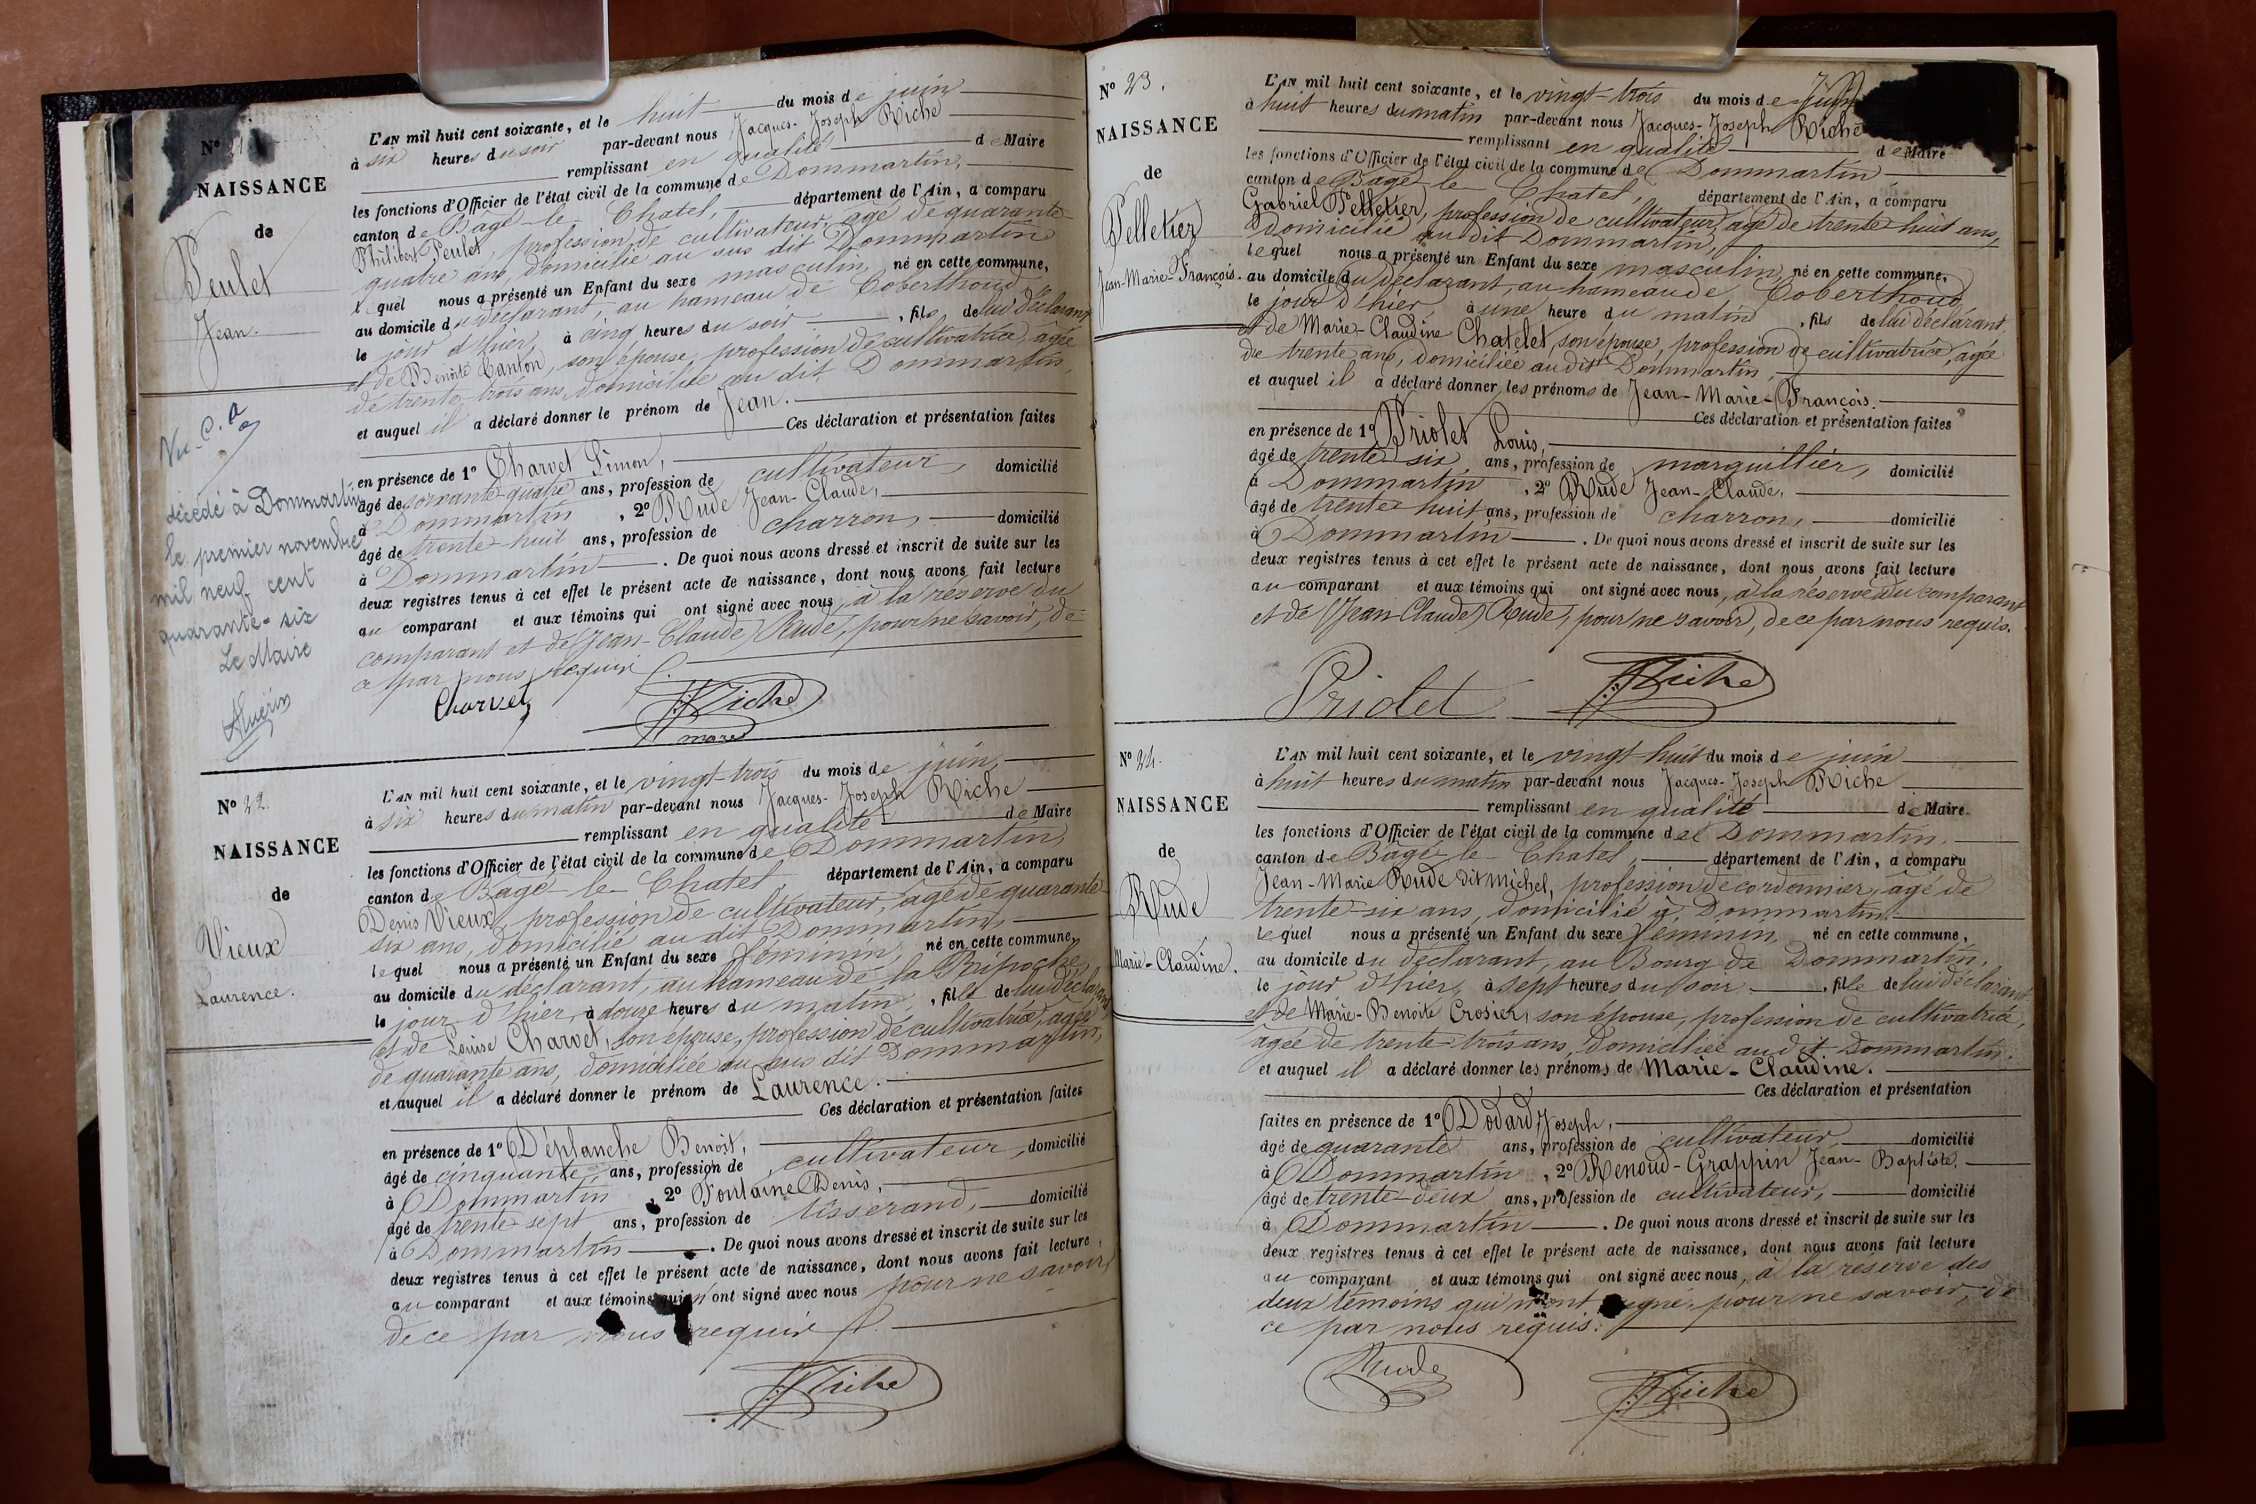 N° 21
NAISSANCE
de
Peulet
Jean.
L'AN mil huit cent soixante, et le huit du mois de juin
à six heures du soir par-devant nous Jacques-Joseph Riche
remplissant en qualité de Maire
les fonctions d'Officier de l'état civil de la commune de Dommartin,
canton de Bâgé-le-Chatel, département de l'Ain, a comparu
Philibert Peulet, profession de cultivateur, âgé de quarante
quatre ans, domicilié au sus dit Dommartin
lequel nous a présenté un Enfant du sexe masculin, né en cette commune,
au domicile du déclarant, au hameau de Coberthoud
le jour d'hier, à cinq heures du soir, fils de lui déclarant
et de Benoite Canton, son épouse, profession de cultivatrice, âgée
de trente-trois ans, domiciliée au dit Dommartin,
et auquel il a déclaré donner le prénom de Jean.
Ces déclaration et présentation faites
en présence de 1° Charvet Simon,
âgé de soixante-quatre ans, profession de cultivateur, domicilié
à Dommartin, 2° Rude Jean-Claude,
âgé de trente-huit ans, profession de charron, domicilié
à Dommartin. De quoi nous avons dressé et inscrit de suite sur les
deux registres tenus à cet effet le présent acte de naissance, dont nous avons fait lecture
au comparant et aux témoins qui ont signé avec nous, à la réserve du
comparant et de (Jean-Claude) Rude, pour ne savoir, de
ce par nous requis.
Charvet Riche
maire
décédé à Dommartin
le premier novembre
mil neuf cent
quarante-six
Le Maire
N° 22.
NAISSANCE
de
Vieux
Laurence.
L'AN mil huit cent soixante, et le vingt-trois du mois de juin,
à six heures du matin par-devant nous Jacques-Joseph Riche
remplissant en qualité de Maire
les fonctions d'Officier de l'état civil de la commune de Dommartin,
canton de Bâgé-le-Chatel, département de l'Ain, a comparu
Denis Vieux, profession de cultivateur, âgé de quarante
six ans, domicilié au dit Dommartin,
lequel nous a présenté un Enfant du sexe féminin, né en cette commune,
au domicile du déclarant, au hameau de la Bripoche,
le jour d'hier, à douze heures du matin, fille de lui déclarant
et de Louise Charvet, son épouse, profession de cultivatrice, âgée
de quarante ans, domiciliée au sus dit Dommartin,
et auquel il a déclaré donner le prénom de Laurence.
Ces déclaration et présentation faites
en présence de 1° Déplanche Benoit,
âgé de cinquante ans, profession de cultivateur, domicilié
à Dommartin, 2° Fontaine Denis,
âgé de trente-sept ans, profession de tisserand, domicilié
à Dommartin. De quoi nous avons dressé et inscrit de suite sur les
deux registres tenus à cet effet le présent acte de naissance, dont nous avons fait lecture,
au comparant et aux témoins qui n'ont signé avec nous pour ne savoir,
de ce par nous requis.
Riche
N° 23.
NAISSANCE
de
Pelletier
Jean-Marie-François.
L'AN mil huit cent soixante, et le vingt-trois du mois de Juin
à huit heures du matin par-devant nous Jacques-Joseph Riche
remplissant en qualité de Maire
les fonctions d'Officier de l'état civil de la commune de Dommartin
canton de Bâgé-le-Chatel, département de l'Ain, a comparu
Gabriel Pelletier, profession de cultivateur, âgé de trente huit ans,
domicilié au dit Dommartin,
lequel nous a présenté un Enfant du sexe masculin, né en cette commune,
au domicile du déclarant, au hameau de Coberthoud
le jour d'hier, à une heure du matin, fils de lui déclarant,
et de Marie-Claudine Chatelet, son épouse, profession de cultivatrice, âgée
de trente ans, domiciliée au dit Dommartin,
et auquel il a déclaré donner les prénoms de Jean-Marie-François.
Ces déclaration et présentation faites
en présence de 1° Priolet Louis,
âgé de trente-six ans, profession de marguillier, domicilié
à Dommartin, 2° Rude Jean-Claude,
âgé de trente-huit ans, profession de charron, domicilié
à Dommartin. De quoi nous avons dressé et inscrit de suite sur les
deux registres tenus à cet effet le présent acte de naissance, dont nous avons fait lecture
au comparant et aux témoins qui ont signé avec nous, à la réserve du comparant
et de (Jean-Claude) Rude, pour ne savoir, de ce par nous requis.
Priolet Riche
N° 24.
NAISSANCE
de
Rude
Marie-Claudine.
L'AN mil huit cent soixante, et le vingt-huit du mois de juin
à huit heures du matin par-devant nous Jacques-Joseph Riche
remplissant en qualité de Maire.
les fonctions d'Officier de l'état civil de la commune de Dommartin.
canton de Bâgé-le-Chatel, département de l'Ain, a comparu
Jean-Marie Rude dit Michel, profession de cordonnier, âgé de
trente-six ans, domicilié à Dommartin.
lequel nous a présenté un Enfant du sexe féminin, né en cette commune,
au domicile du déclarant, au Bourg de Dommartin,
le jour d'hier, à sept heures du soir, fille de lui déclarant
et de Marie-Benoite Crosier, son épouse, profession de cultivatrice,
âgée de trente-trois ans, domiciliée au dit Dommartin.
et auquel il a déclaré donner les prénoms de Marie-Claudine.
Ces déclaration et présentation
faites en présence de 1° Dodard Joseph,
âgé de quarante ans, profession de cultivateur, domicilié
à Dommartin, 2° Renoud-Grappin Jean-Baptiste,
âgé de trente-deux ans, profession de cultivateur, domicilié
à Dommartin. De quoi nous avons dressé et inscrit de suite sur les
deux registres tenus à cet effet le présent acte de naissance, dont nous avons fait lecture
au comparant et aux témoins qui ont signé avec nous, à la réserve des
deux témoins qui n'ont signé, pour ne savoir, de
ce par nous requis.
Rude Riche